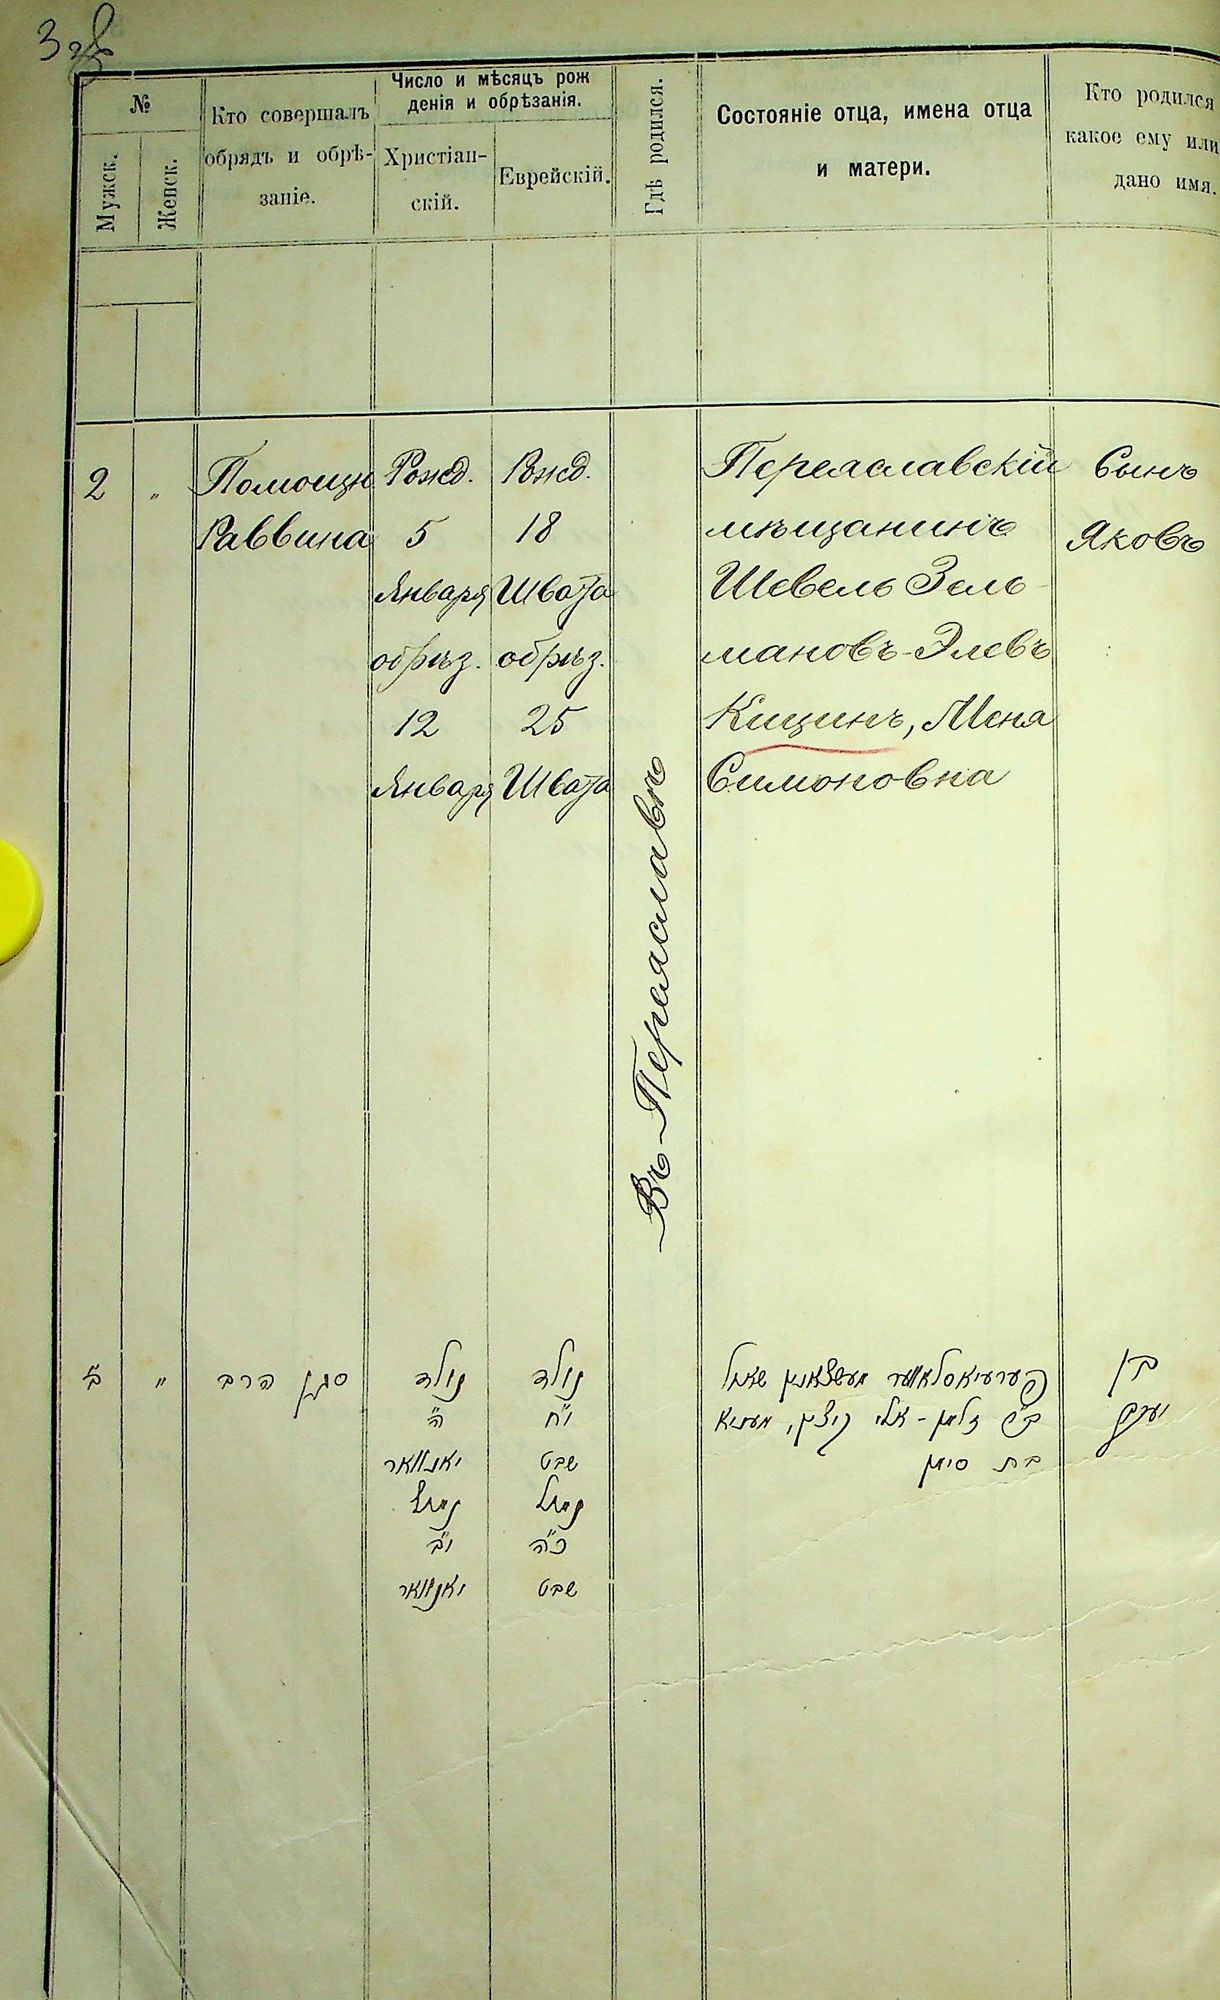 №
Мужск.
Женск.
Кто совершалъ
обрядъ и обрѣ-
заніе.
Число и мѣсяцъ рож
денія и обрѣзанія.
Христіан-
скій.
Еврейскій.
Гдѣ родился.
Состояніе отца, имена отца
и матери.
Кто родился
какое ему или
дано имя.
2
"
Помощн
Раввина
Рожд.
5
Января
обрѣз.
12
Января
Рожд.
18
Швата
обрѣз.
25
Швата
Въ Переяславѣ
Переяславскій
мѣщанинъ
Шевель Зель-
мановъ-Элевъ
Кицинъ, Меня
Симоновна
Сынъ
Яковъ
ב׳
"
סגן הרב
נולד
ה׳
יאנוואר
נמול
י״ב
יאנוואר
נולד
י״ח
שבט
נמול
כ״ה
שבט
פערעיאסלאווער מעשצאנין
זלמן - אלי קיצין,
בת סימן
בן
יעקב